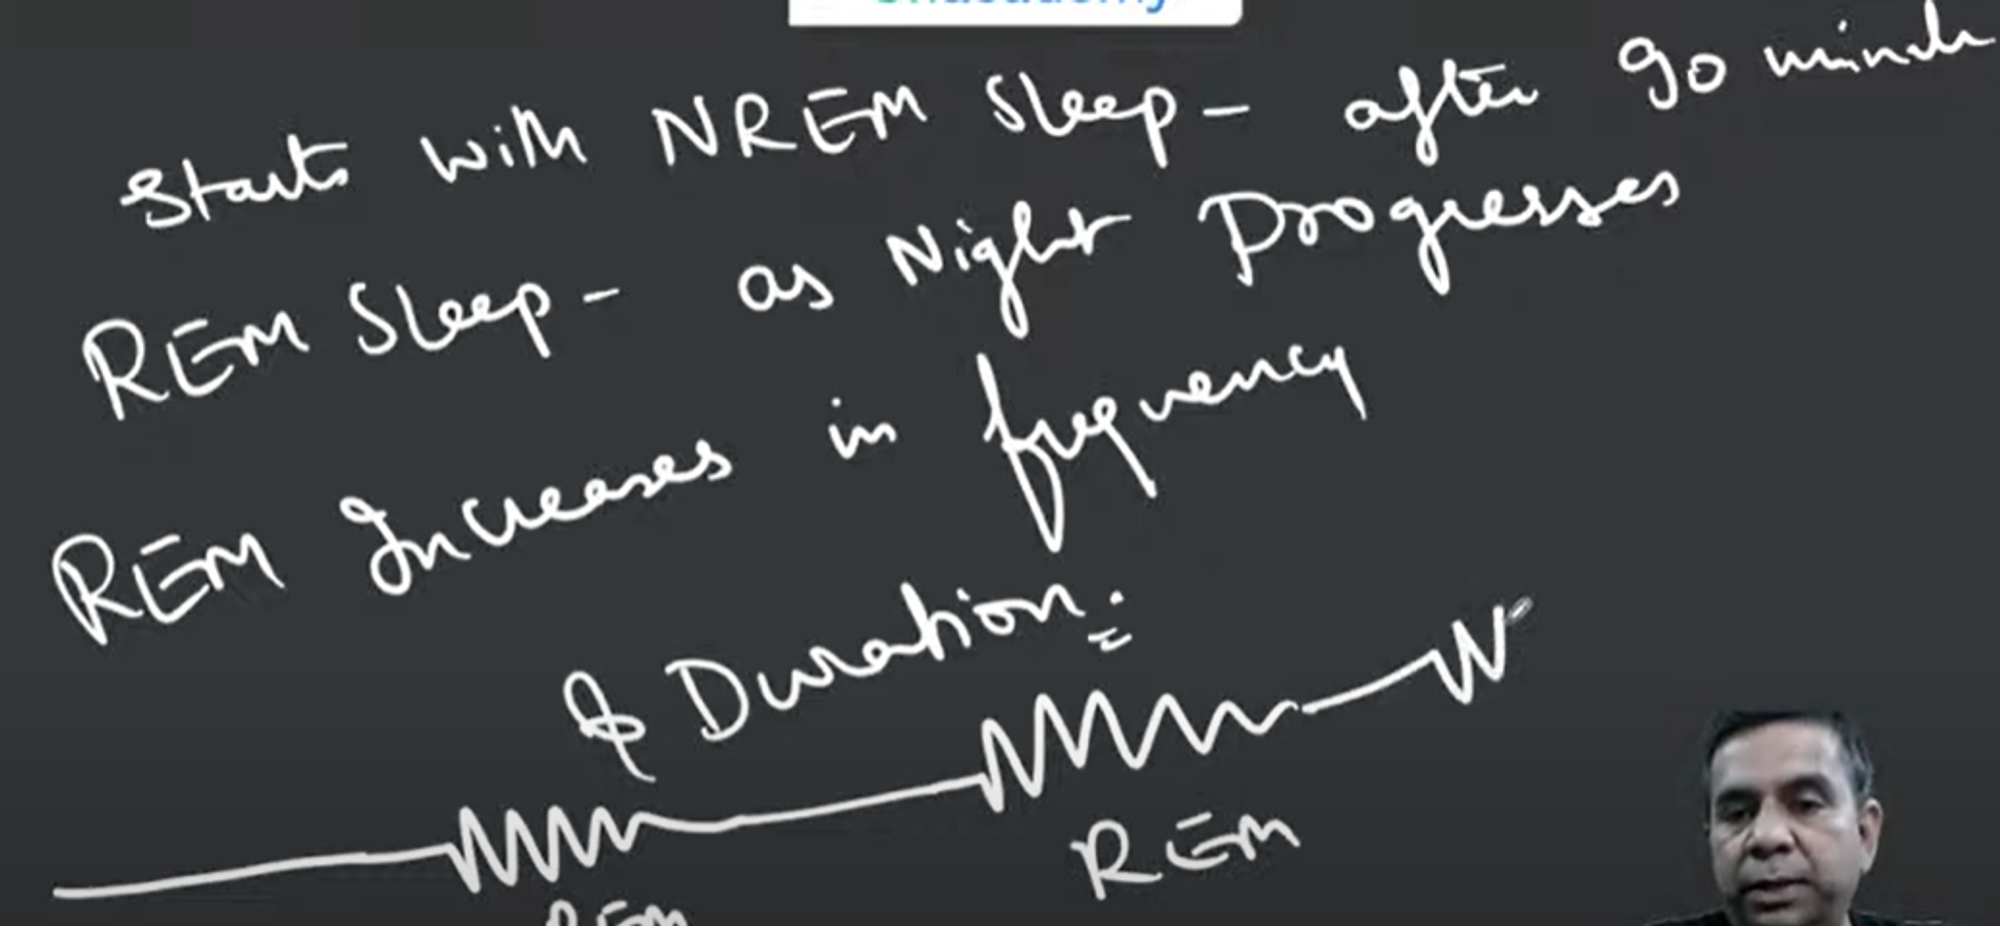 Unacademy
Starts with NREM Sleep - after 90 minute
REM Sleep - as Night Progresses
REM Increases in frequency
& Duration.
REM
REM